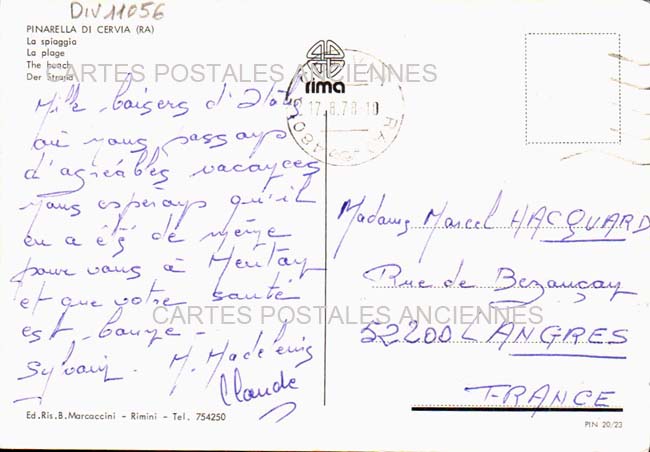 DIV 11056
PINARELLA DI CERVIA (RA)
La spiaggia
La plage
The beach
Der Strand
CARTES POSTALES ANCIENNES
rima
17.8.78-10
Mille baisers d'Italie
où nous passons
d'agréables vacances
nous espérons qu'il
en a été de même
pour vous à Menton
et que votre santé
est bonne -
Sylvain. M. Madeleine
Claude
Madame Marcel HACQUARD
Rue de Bezançay
52200 LANGRES
FRANCE
CARTES POSTALES ANCIENNES
Ed.Ris.B.Marcaccini - Rimini - Tel. 754250
PIN 20/23